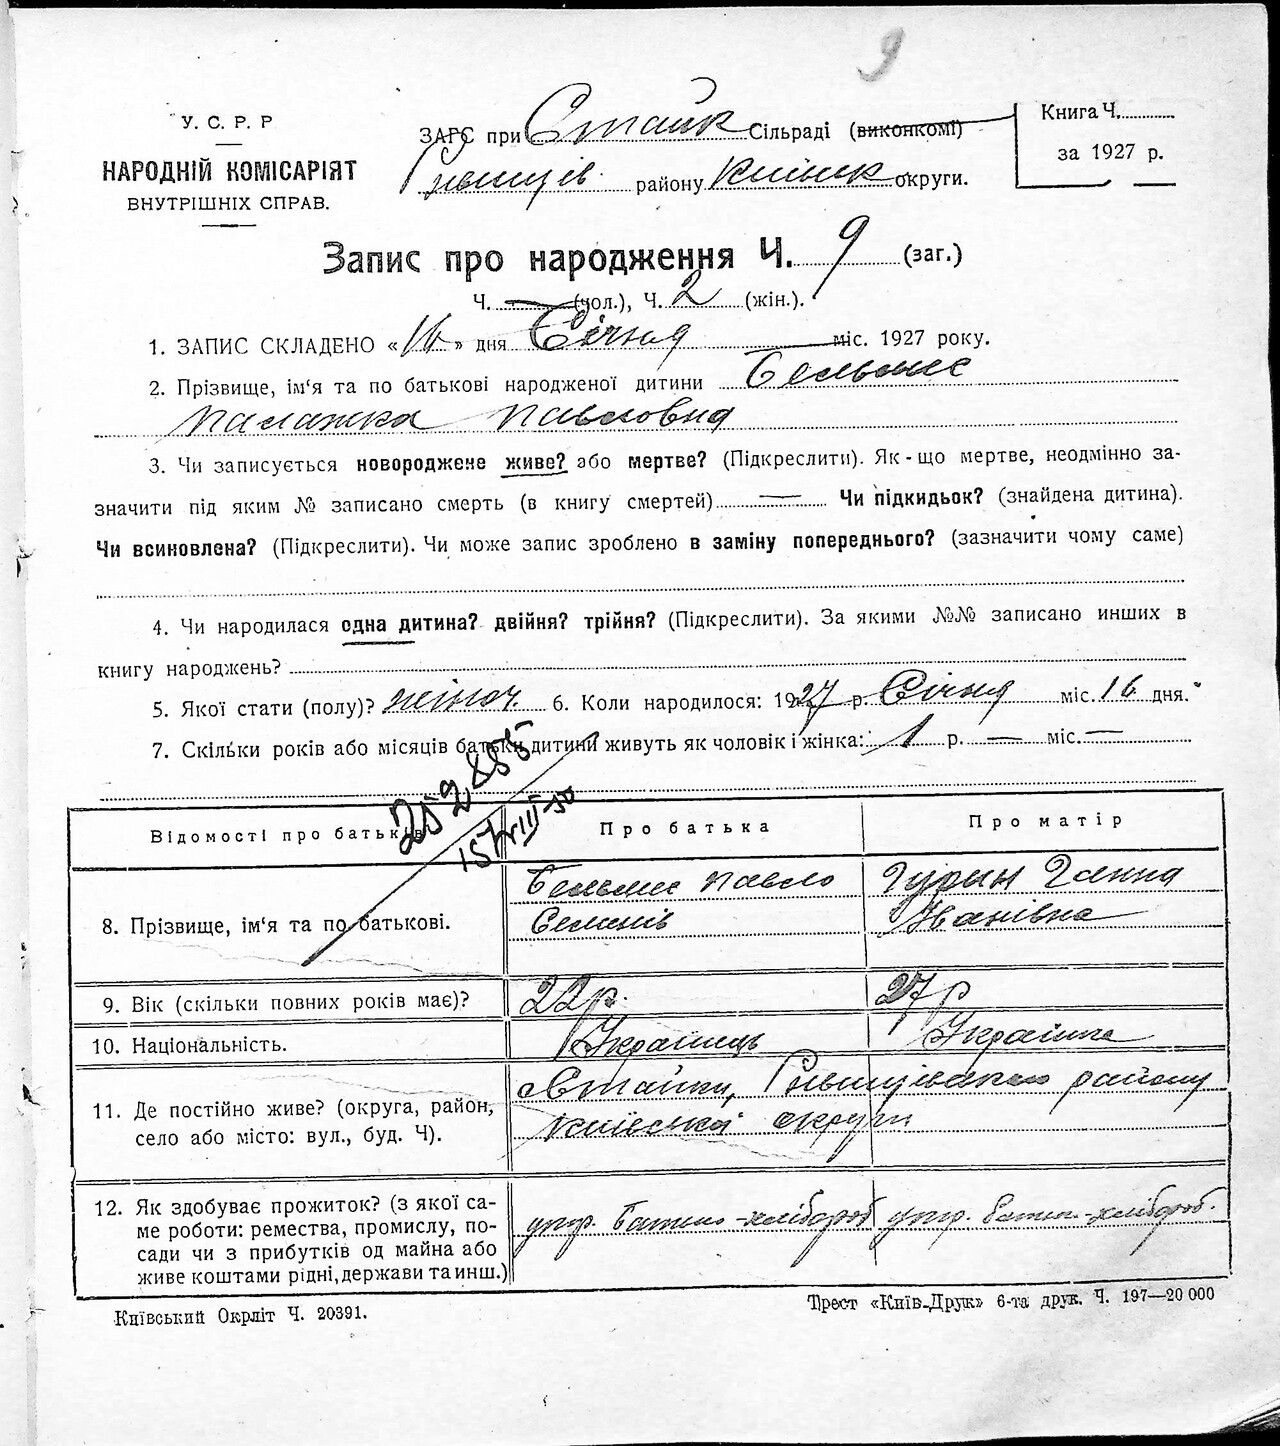 9
У. С. Р. Р
НАРОДНІЙ КОМІСАРІЯТ
ВНУТРІШНІХ СПРАВ.
ЗАГС при Стайк Сільраді (виконкомі)
Ржищів. району Київськ округи.
Книга Ч.
за 1927 р.
Запис про народження Ч. 9 (заг.)
Ч. — (чол.), Ч. 2 (жін.).
1. ЗАПИС СКЛАДЕНО «16» дня Січня міс. 1927 року.
2. Прізвище, ім'я та по батькові народженої дитини Бельмес
Палажка Павловна
3. Чи записується новороджене живе? або мертве? (Підкреслити). Як-що мертве, неодмінно за-
значити під яким № записано смерть (в книгу смертей) — Чи підкидьок? (знайдена дитина).
Чи всиновлена? (Підкреслити). Чи може запис зроблено в заміну попереднього? (зазначити чому саме)
4. Чи народилася одна дитина? двійня? трійня? (Підкреслити). За якими №№ записано инших в
книгу народжень?
5. Якої стати (полу)? жіноч. 6. Коли народилося: 1927 р. Січня міс. 16 дня.
7. Скільки років або місяців батьки дитини живуть як чоловік і жінка: 1 р. — міс. —
252855
15/VIII-50
Відомості про батьків
Про батька
Про матір
8. Прізвище, ім'я та по батькові.
Бельмес Павло
Семенів
Гурын Ганна
Іванівна
9. Вік (скільки повних років має)?
22 р.
27 р
10. Національність.
Українець
Українка
11. Де постійно живе? (округа, район,
село або місто: вул., буд. Ч).
Стайки, Ржищівського району
Київської округи
12. Як здобуває прожиток? (з якої са-
ме роботи: ремества, промислу, по-
сади чи з прибутків од майна або
живе коштами рідні, держави та инш.)
хлібороб
хлібороб.
Київський Окрліт Ч. 20391.
Трест «Київ-Друк» 6-та друк. Ч. 197—20 000